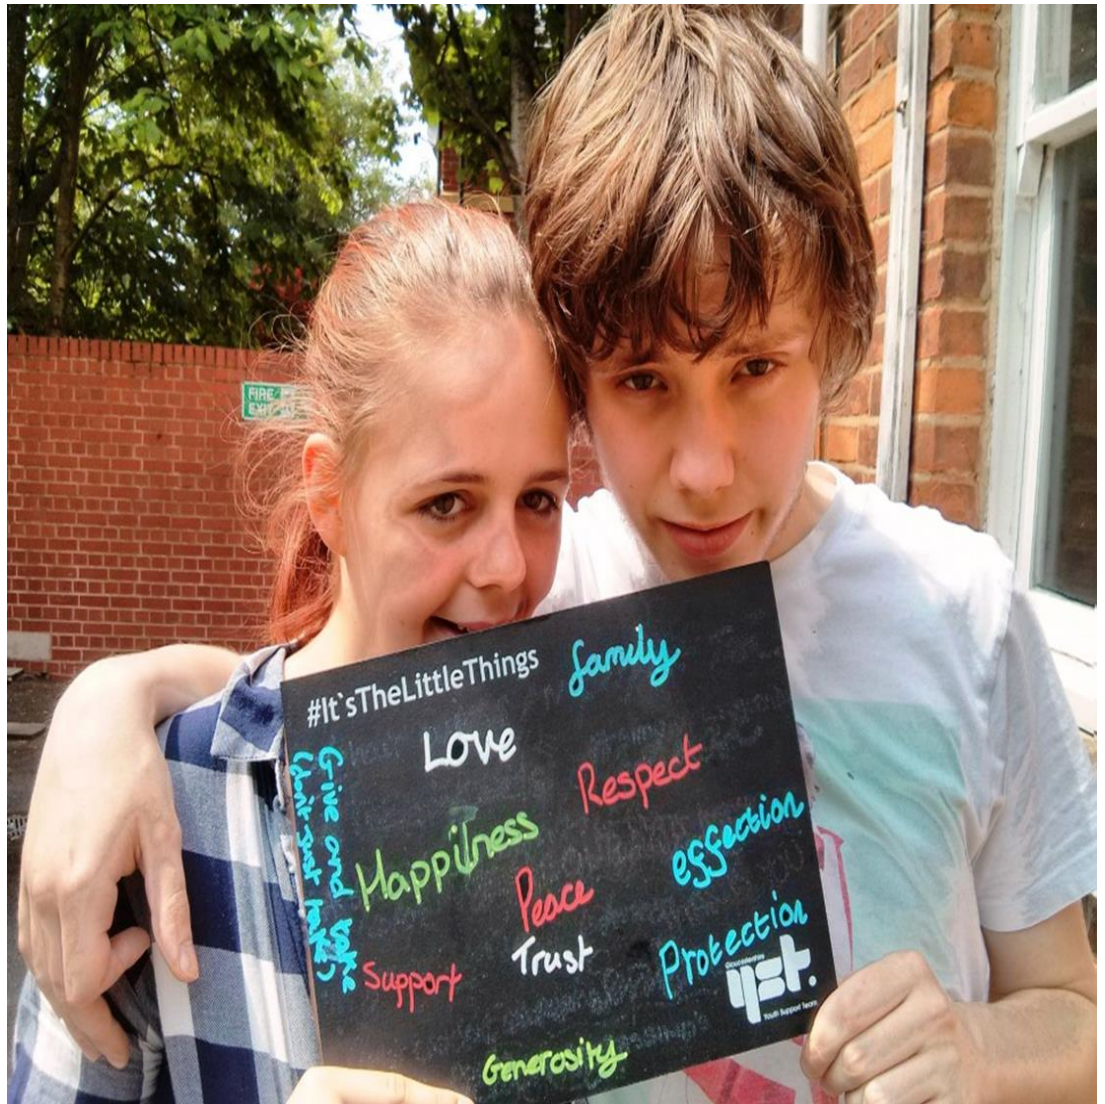 FIRE
EXIT
#It`sTheLittleThings
family
Love
Respect
Give and take
(don't just take)
Happiness
effection
Peace
Trust
Support
Protection
Gloucestershire
yst.
Youth Support Team
Generosity